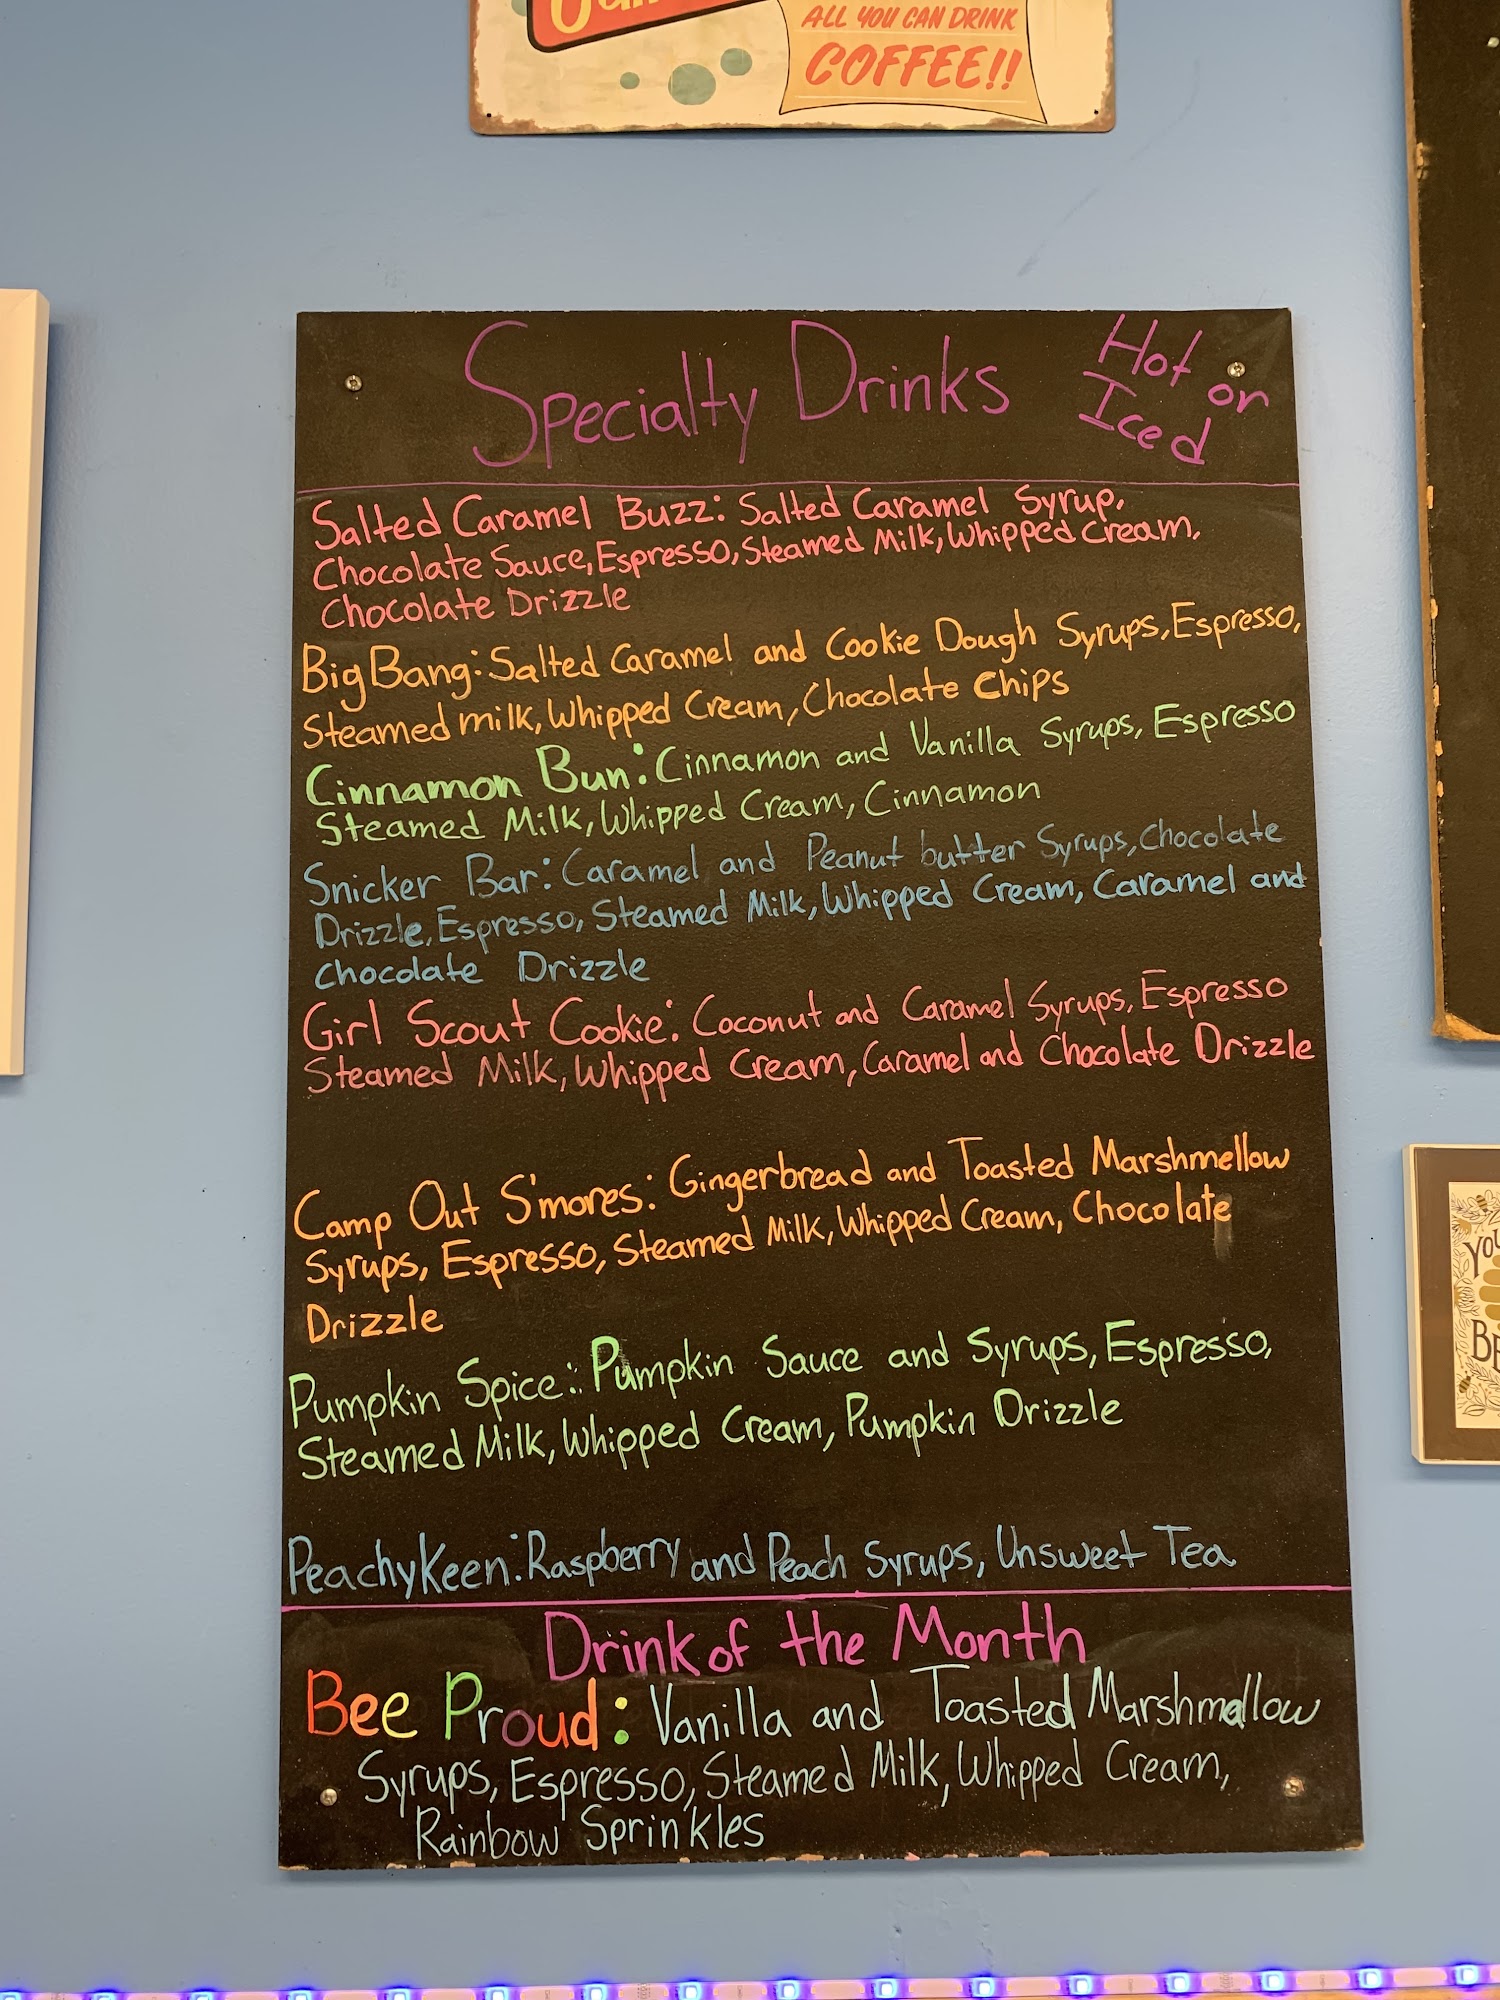 ALL YOU CAN DRINK
COFFEE!!
Specialty Drinks
Hot or
Iced
Salted Caramel Buzz: Salted Caramel Syrup,
Chocolate Sauce, Espresso, Steamed Milk, Whipped Cream,
Chocolate Drizzle
Big Bang: Salted Caramel and Cookie Dough Syrups, Espresso,
Steamed milk, Whipped Cream, Chocolate Chips
Cinnamon Bun: Cinnamon and Vanilla Syrups, Espresso
Steamed Milk, Whipped Cream, Cinnamon
Snicker Bar: Caramel and Peanut butter Syrups, Chocolate
Drizzle, Espresso, Steamed Milk, Whipped Cream, Caramel and
Chocolate Drizzle
Girl Scout Cookie: Coconut and Caramel Syrups, Espresso
Steamed Milk, Whipped Cream, Caramel and Chocolate Drizzle
Camp Out S'mores: Gingerbread and Toasted Marshmellow
Syrups, Espresso, Steamed Milk, Whipped Cream, Chocolate
Drizzle
Pumpkin Spice: Pumpkin Sauce and Syrups, Espresso,
Steamed Milk, Whipped Cream, Pumpkin Drizzle
Peachy Keen: Raspberry and Peach Syrups, Unsweet Tea
Drink of the Month
Bee Proud: Vanilla and Toasted Marshmallow
Syrups, Espresso, Steamed Milk, Whipped Cream,
Rainbow Sprinkles